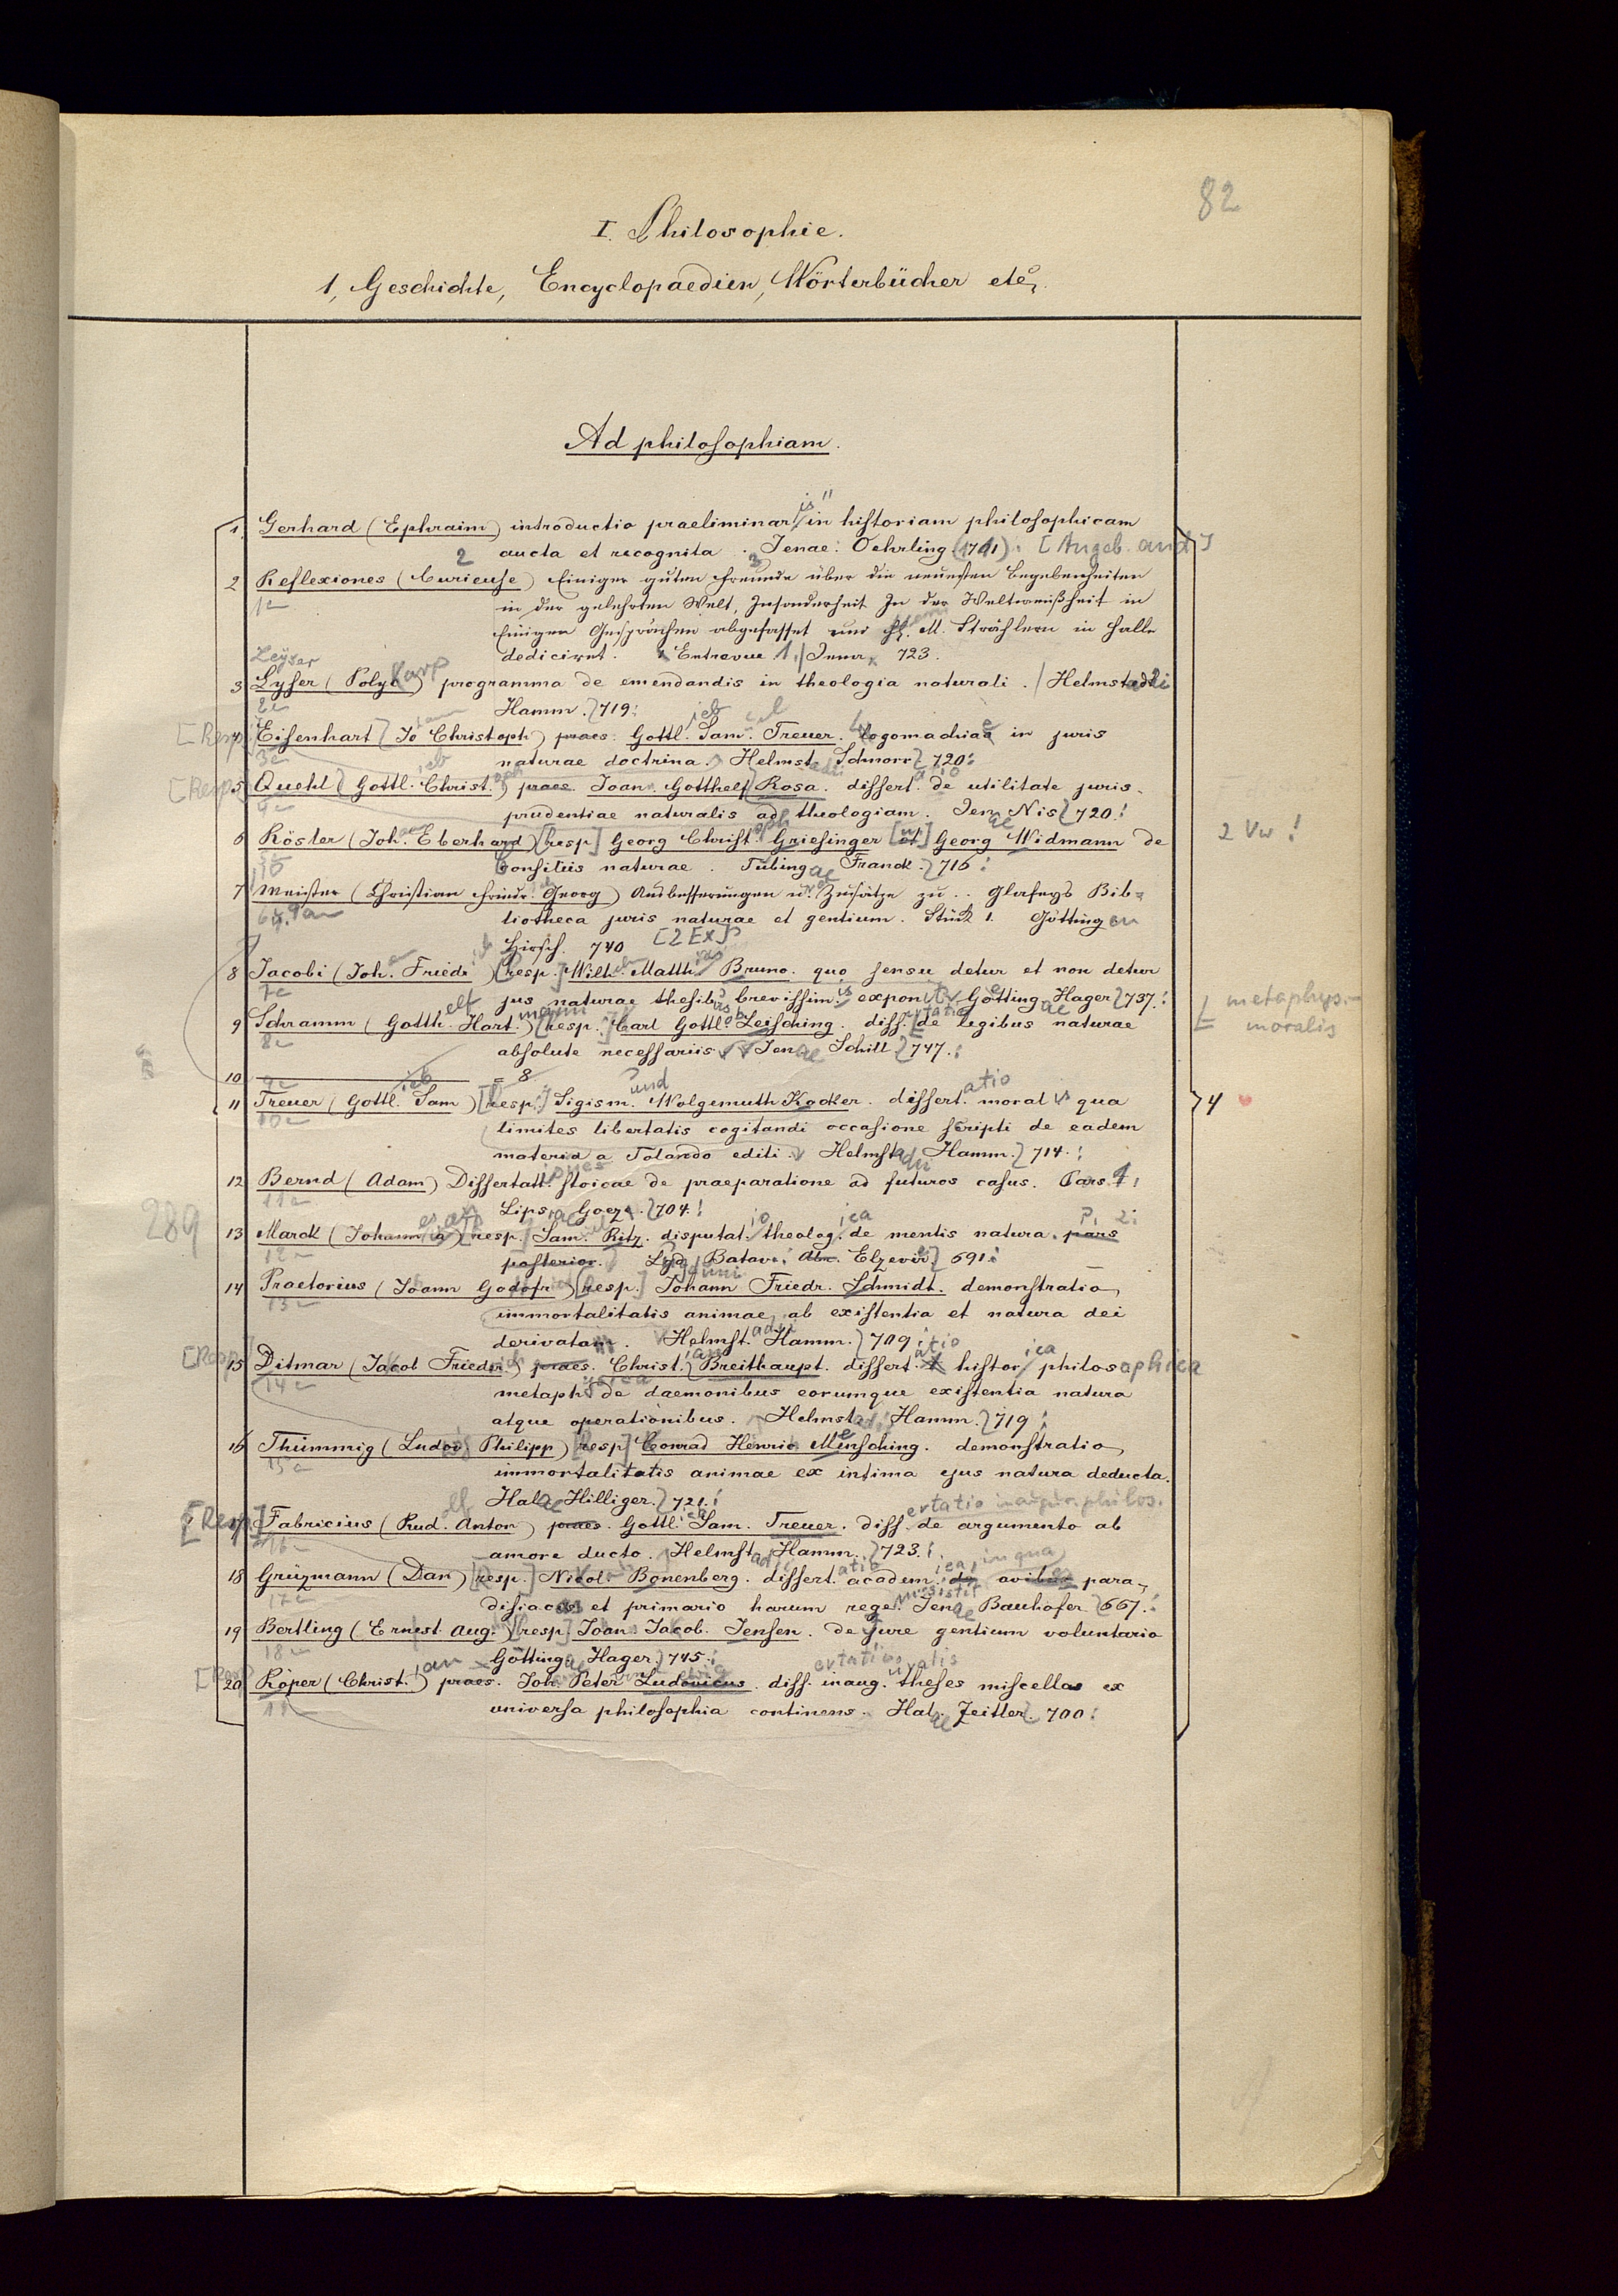 82
I. Philosophie.
1, Geschichte, Encyclopaedien, Wörterbücher etc.
Ad philosophiam.
1 Gerhard (Ephraim) introductio praeliminaris in historiam philosophicam
aucta et recognita. Jenae: Oehrling (1711). [Angeb. and]
2 Reflexiones (Curieuse) Einiger guten Freunde über die neuesten Begebenheiten
1a in der gelehrten Welt, Insonderheit In der Weltweißheit in
Einigen Gesprächen abgefasset und H. M. Strählern in Halle
dediciret. Entrevue 1. Jena, 723.
Leyser
3 Lyser (Polycarp) programma de emendandis in theologia naturali. Helmstadii
2a Hamm. 719.
[Resp.] 4 Eisenhart (Jo Christoph) praes. Gottlieb Sam. Treuer. Logomachiae in juris
3a naturae doctrina. Helmst. Schnorr 720.
[Resp.] 5 Quehl (Gottl. Christ.) praes. Joan. Gotthelf Rosa. dissert. de utilitate juris-
4a prudentiae naturalis ad theologiam. Jenae Nis 720.
6 Röster (Joh. Eberhard) [resp.] Georg Christoph Griesinger [et] Georg Widmann de
5a Consiliis naturae. Tubingae Franck. 716.
2 Vw!
7 Meister (Christian Friedr. Georg) Ausbesserungen u. Zusätze zu.. Glafeys Bib-
6a, 9a liotheca juris naturae et gentium. Stück 1. Götting en
Hirsch. 740 [2 Ex]
8 Jacobi (Joh. Friedr) [resp.] Wilh. Matth. Bruno. quo sensu detur et non detur
7a jus naturae thesibus brevissimis expon Göttingae Hager 737.
metaphys.-
moralis
9 Schramm (Gotth. Hartmann) [resp.] Carl Gottlob Leisching. diss. de legibus naturae
8a absolute necessariis. Jenae Schill 747.
10 = 8.
9a
11 Treuer (Gottlieb Sam) [resp.] Sigismund Wolgemuth Kocher. dissertatio moral qua
10a limites libertatis cogitandi occasione scripti de eadem
4
materia a Tolando editi. Helmstadii Hamm. 714.
12 Bernd (Adam) Dissertationes stoicae de praeparatione ad futuros casus. Pars 1.
11a Lips. Goeze. 704.
289
13 Marck (Johann a) [resp.] Sam. Ritz. disputatio theologica de mentis natura. pars P. 2.
12a posterior. Lugduni Batavi Elzevir 691.
14 Praetorius (Joann Godofr) [resp.] Johann Friedr. Schmidt. demonstratio
13a immortalitatis animae ab existentia et natura dei
derivatam. Helmstadii Hamm. 709.
[Resp.] 15 Ditmar (Jacob Friedr) praes. Christian Breithaupt. dissertatio historica philosophica
14a metaphysica de daemonibus eorumque existentia natura
atque operationibus. Helmst. Hamm. 719.
16 Thümmig (Ludov. Philipp) [resp.] Conrad Henric Mensching. demonstratio
15a immortalitatis animae ex intima ejus natura deducta.
Halae Hilliger. 721.
[Resp.] 17 Fabricius (Rud. Anton) praes. Gottlieb Sam. Treuer. dissertatio inaugur. philos. de argumento ab
16a amore ducto. Helmstadii Hamm. 723.
18 Grüzmann (Dan) [resp.] Nicol. Bonenberg. dissertatio academica, in qua de avibus para-
17a disiacis et primario harum rege. Jenae Bauhofer 667.
19 Bertling (Ernest Aug.) [resp.] Joan. Jacob. Jensen. de Jure gentium voluntario
18a Göttingae Hager. 745.
[Resp.] 20 Röper (Christian) praes. Joh. Peter Ludovicus. dissertatio inaug. theses miscellas ex
universa philosophia continens. Halae Zeitler 700.